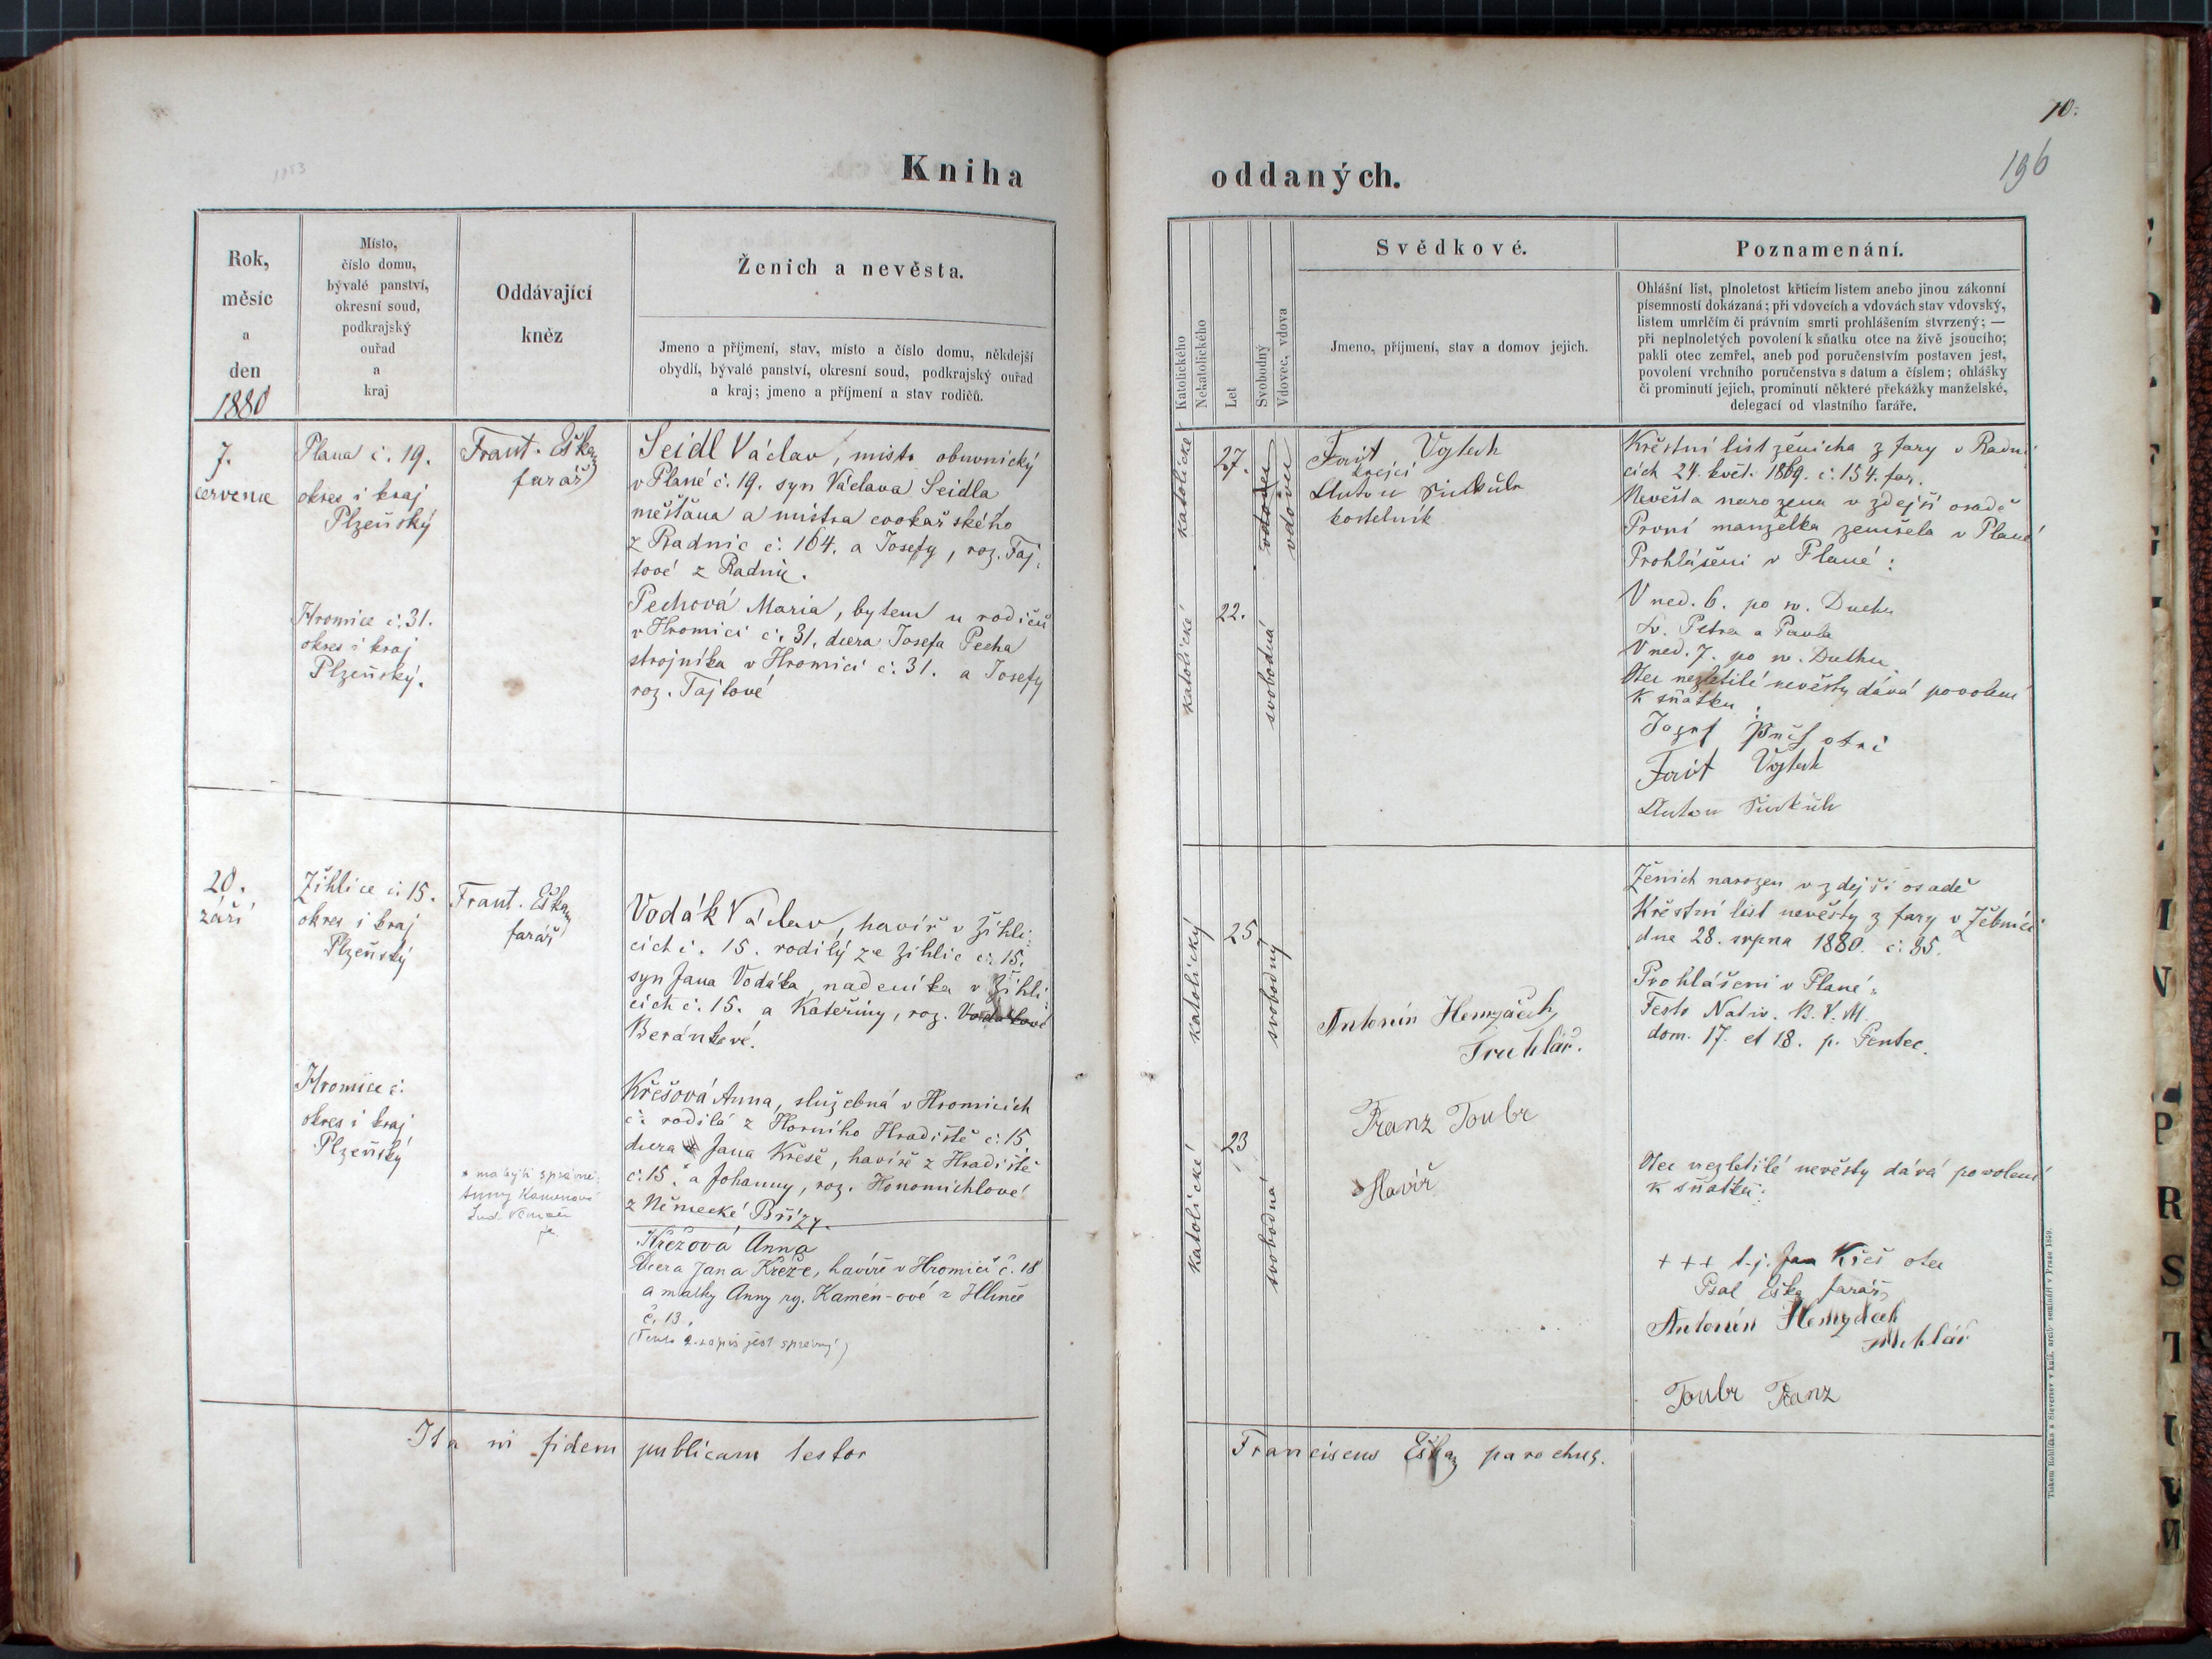 10.
196
Kniha oddaných.
Rok,
měsíc
a
den
1880
Místo,
číslo domu,
bývalé panství,
okresní soud,
podkrajský
ouřad
a
kraj
Oddávající
kněz
Ženich a nevěsta.
Jmeno a příjmení, stav, místo a číslo domu, někdejší
obydlí, bývalé panství, okresní soud, podkrajský ouřad
a kraj; jmeno a příjmení a stav rodičů.
Katolického
Nekatolického
Let
Svobodný
Vdovec, vdova
Svědkové.
Jmeno, příjmení, stav a domov jejich.
Poznamenání.
Ohlášní list, plnoletost křticím listem anebo jinou zákonní
písemností dokázaná; při vdovcích a vdovách stav vdovský,
listem umrlčím či právním smrti prohlášením stvrzený; —
při neplnoletých povolení k sňatku otce na živě jsoucího;
pakli otec zemřel, aneb pod poručenstvím postaven jest,
povolení vrchního poručenstva s datum a číslem; ohlášky
či prominutí jejich, prominutí některé překážky manželské,
delegací od vlastního faráře.
7.
července
Plana č. 19.
okres i kraj
Plzeňský
Frant. Eška
farář
Seidl Václav, mistr obuvnický
v Plané č. 19. syn Václava Seidla
měšťana a mistra cvokařského
z Radnic č. 164. a Josefy, roz. Taj-
lové z Radnic.
Hromice č. 31.
okres i kraj
Plzeňský.
Pechová Maria, bytem u rodičů
v Hromici č. 31. dcera Josefa Pecha
strojníka v Hromici č. 31. a Josefy
roz. Tajlové
katolické
27.
vdovec
vdovec
katolické
22.
svobodná
Fait Vojtech
krejcí
Anton
kostelník
Křestní list ženicha z fary v Radni
cích 24. květ. 1869. č. 154. far.
Nevěsta narozena v zdejší osadě
První manželka zemřela v Plané
Prohlášeni v Plané:
V ned. 6. po sv. Duchu
Sv. Petra a Pavla
V ned. 7. po sv. Duchu.
Otec nezletilé nevěsty dává povolení
k sňatku:
Fait Vojtech
Anton
20.
září
Žihlice č. 15.
okres i kraj
Plzeňský
Frant. Eška
farář
Vodák Václav, havíř v Žihli-
cích č. 15. rodilý ze Žihlic č. 15.
syn Jana Vodáka, nadeníka v Žihli-
cích č. 15. a Kateřiny, roz. Vodákové
Beránkové.
Hromice č.
okres i kraj
Plzeňský
Křešová Anna, služebná v Hromicích
č. rodilá z Horního Hradiště č. 15
dcera Jana Křeše, havíře z Hradiště
č. 15. a Johanny, roz. Honomichlové
z Německé Břízy.
* má býti správně:
Anny Kamenové
Křežová Anna
Dcera Jana Křeže, havíře v Hromici č. 18
a matky Anny rz. Kamén-ové z Hlince
č. 13.
(Tento 2. zápis jest správný)
katolický
25
svobodný
katolické
23
svobodná
Antonín Hemzáček
Truhlář.
Franz Toubr
Havíř
Ženich narozen v zdejší osadě
Křestní list nevěsty z fary v Žebnici
dne 28. srpna 1880. č. 35.
Prohlášeni v Plané:
Festo Nativ. B. V. M.
dom. 17. et 18. p. Pentec.
Otec nezletilé nevěsty dává povolení
k sňatku:
+++ t.j. Jan Křeš otec
Psal Eška farář
Antonín Hemzáček
truhlář
Toubr Franz
Ita in fidem publicam testor Franciscus Eška parochus.